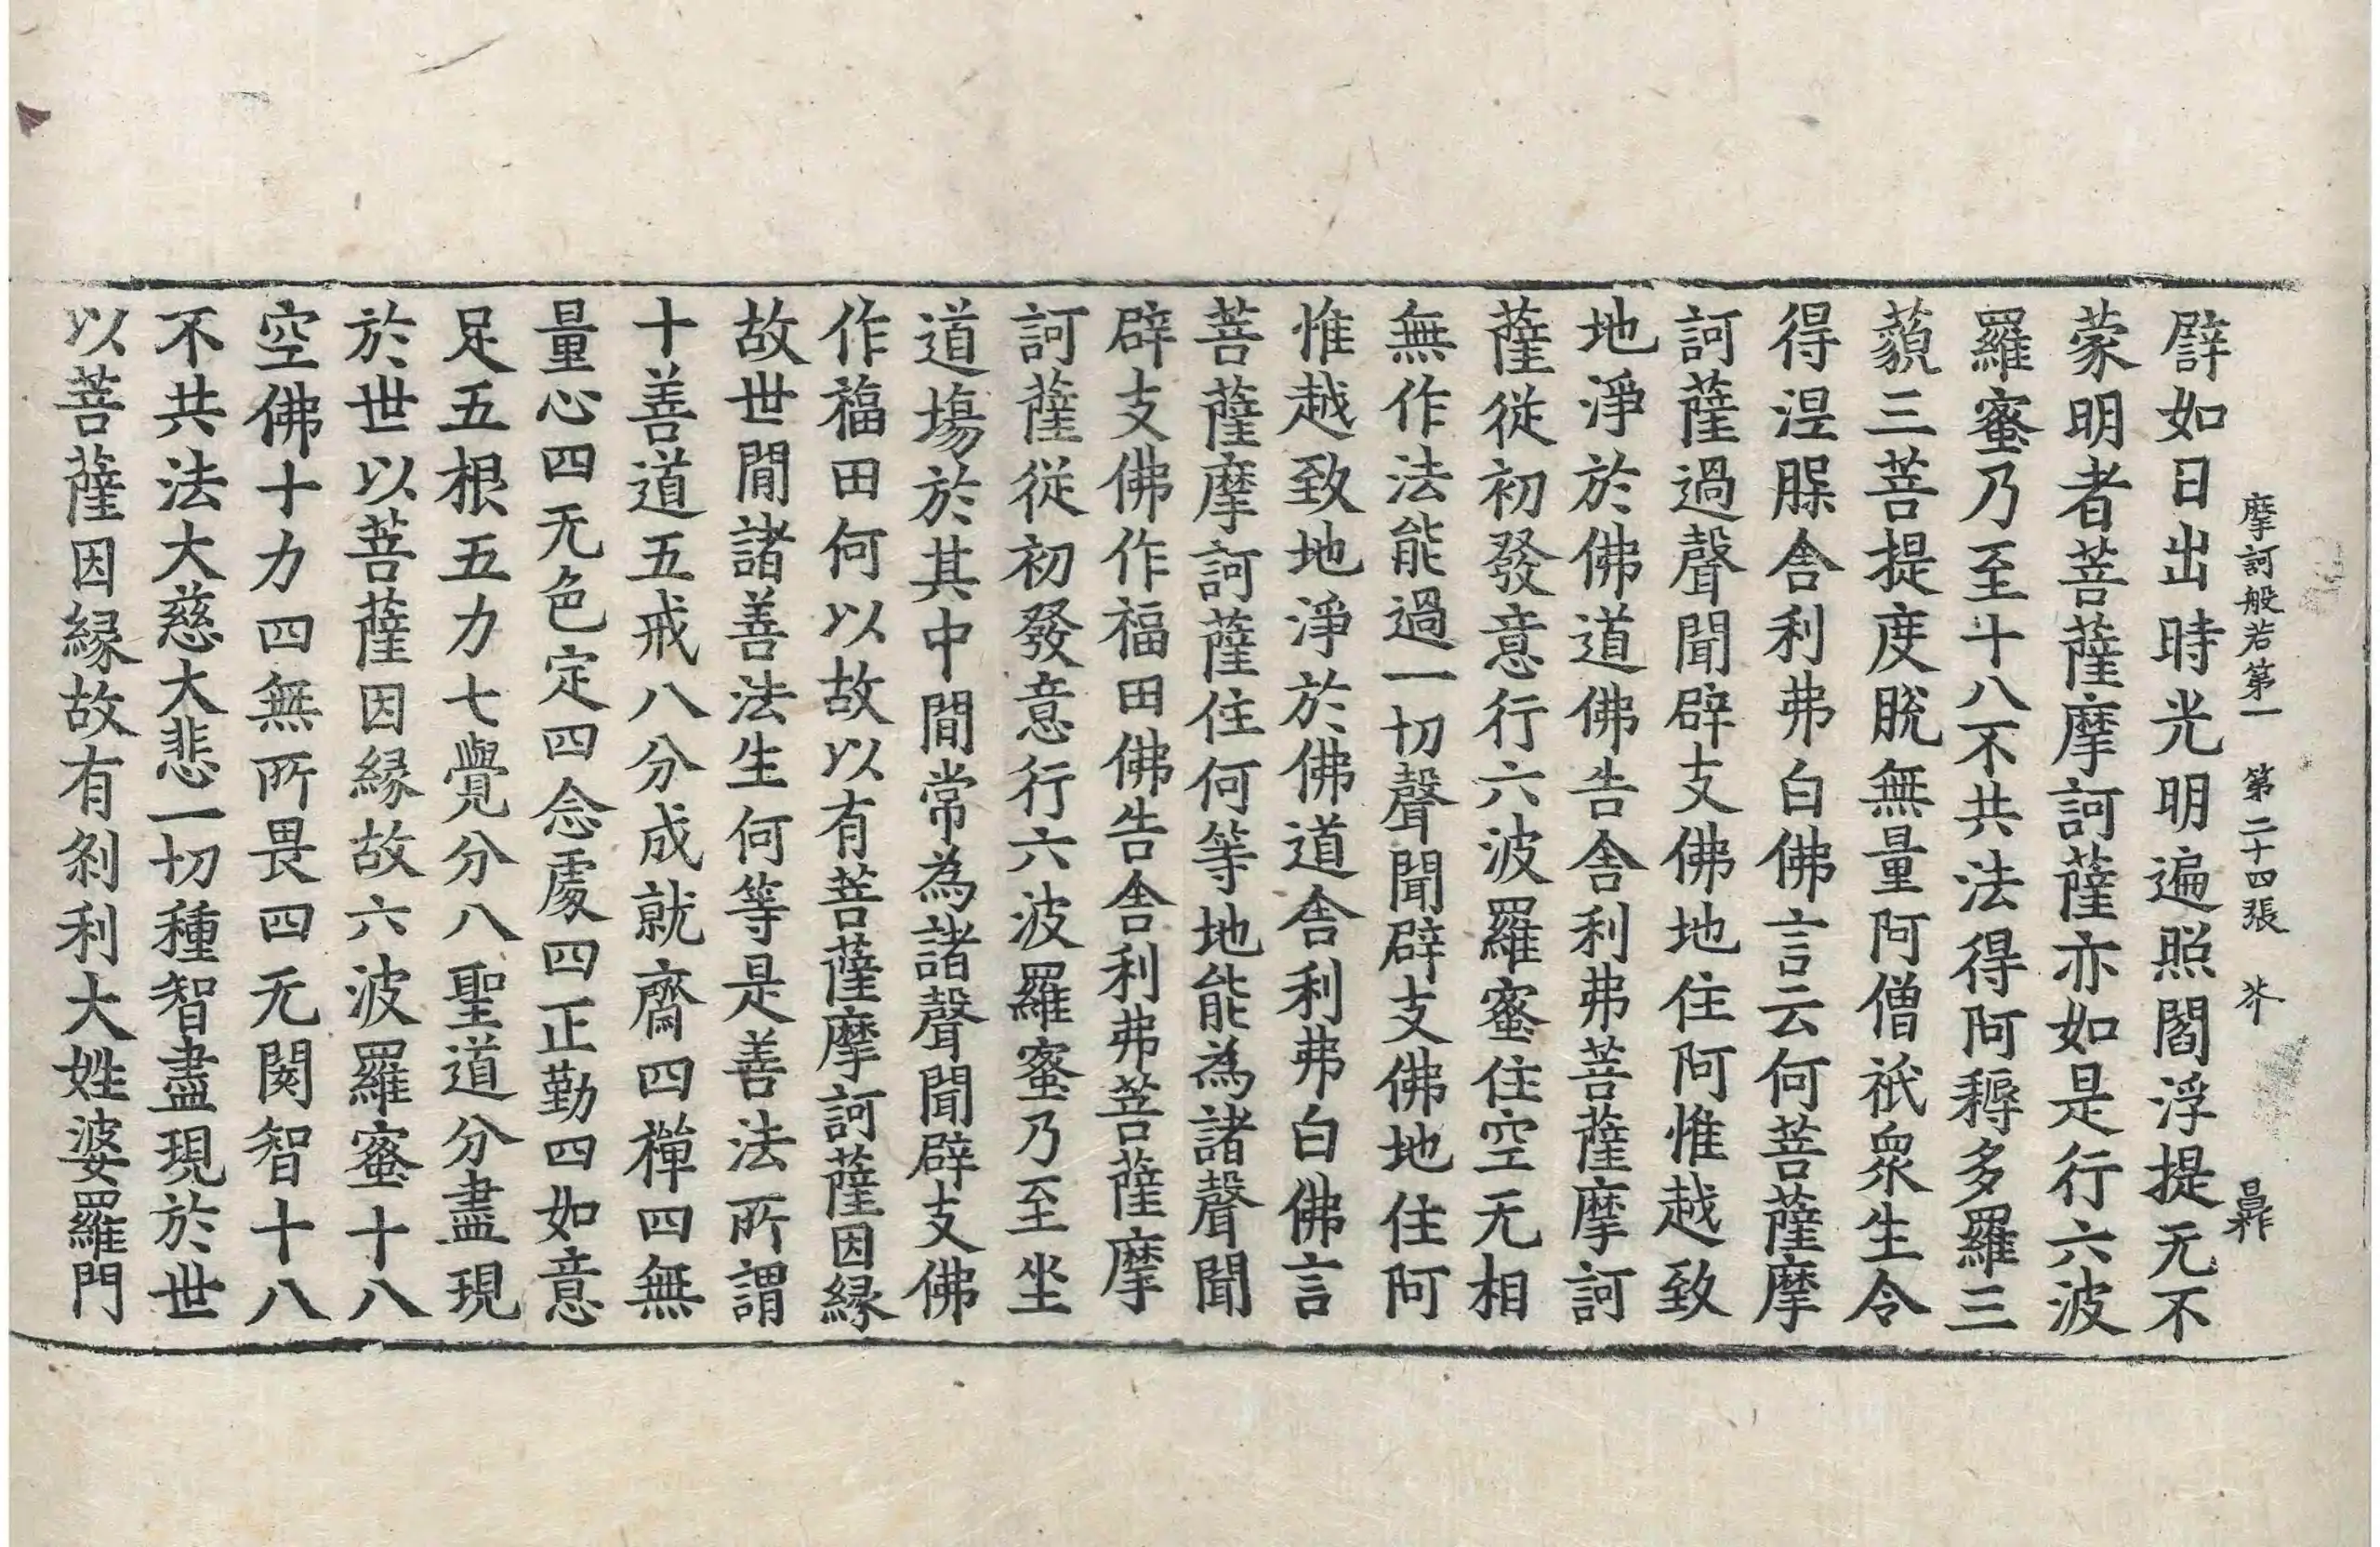 摩訶般若第一 第二十四張 芥
譬如日出時光明遍照閻浮提无不
蒙明者菩薩摩訶薩亦如是行六波
羅蜜乃至十八不共法得阿耨多羅三
藐三菩提度脫無量阿僧祇衆生令
得涅槃舍利弗白佛言云何菩薩摩
訶薩過聲聞辟支佛地住阿惟越致
地淨於佛道佛告舍利弗菩薩摩訶
薩從初發意行六波羅蜜住空无相
無作法能過一切聲聞辟支佛地住阿
惟越致地淨於佛道舍利弗白佛言
菩薩摩訶薩住何等地能為諸聲聞
辟支佛作福田佛告舍利弗菩薩摩
訶薩從初發意行六波羅蜜乃至坐
道場於其中間常為諸聲聞辟支佛
作福田何以故以有菩薩摩訶薩因緣
故世間諸善法生何等是善法所謂
十善道五戒八分成就齋四禪四無
量心四无色定四念處四正勤四如意
足五根五力七覺分八聖道分盡現
於世以菩薩因緣故六波羅蜜十八
空佛十力四無所畏四无閡智十八
不共法大慈大悲一切種智盡現於世
以菩薩因緣故有刹利大姓婆羅門